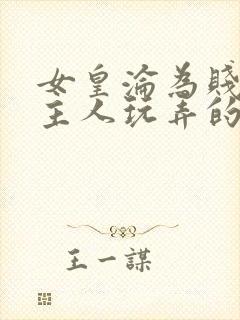 女皇淪為賤
主人玩弄的
王一謀